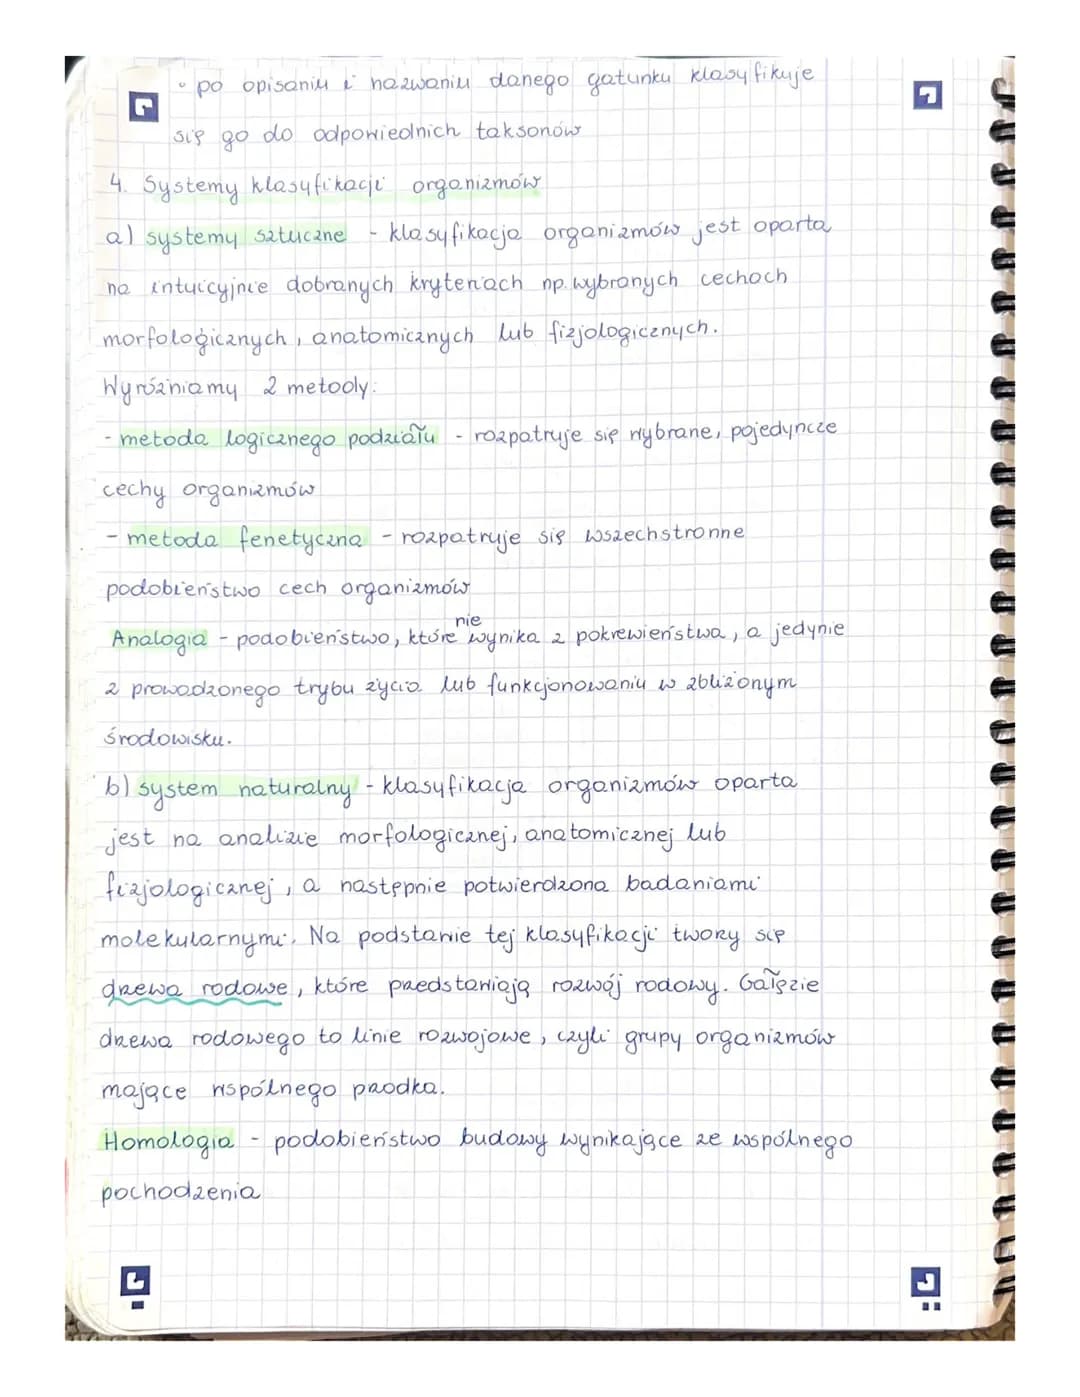 • po opisaniu i nazwaniu danego gatunku klasyfikuje
się go do odpowiednich taksonów
4. Systemy klasyfikacji organizmów
a) systemy sztuczne - klasyfikacja organizmów jest oparta
na intuicyjnie dobranych kryteriach np. wybranych cechach
morfologicznych, anatomicznych lub fizjologicznych.
Wyróżniamy 2 metody:
- metoda logicznego podziału - rozpatruje się wybrane, pojedyncze
cechy organizmów
- metoda fenetyczna - rozpatruje się wszechstronne
podobieństwo cech organizmów
Analogia - podobieństwo, które nie wynika z pokrewieństwa, a jedynie
z prowadzonego trybu życia lub funkcjonowaniu w zbliżonym
środowisku.
b) system naturalny - klasyfikacja organizmów oparta
jest na analizie morfologicznej, anatomicznej lub
fizjologicznej, a następnie potwierdzona badaniami
molekularnymi. Na podstawie tej klasyfikacji tworzy się
drzewa rodowe, które przedstawiają rozwój rodowy. Gałęzie
drzewa rodowego to linie rozwojowe, czyli grupy organizmów
mające wspólnego przodka.
Homologia - podobieństwo budowy wynikające ze wspólnego
pochodzenia